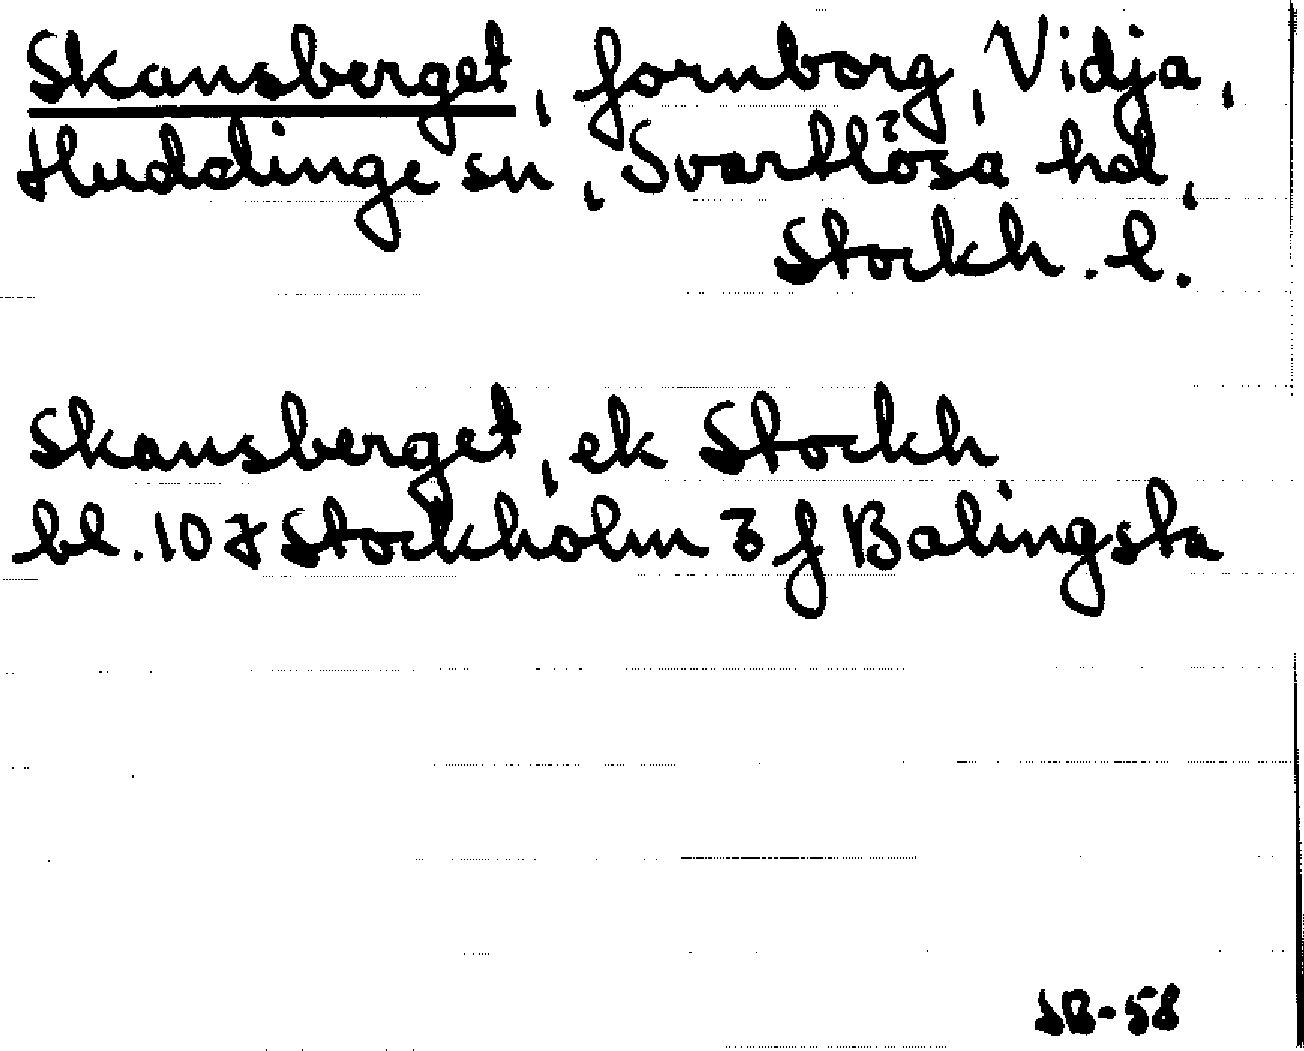 Skansberget, fornborg, Vidja,
Huddinge sn, Svartlösa hd,
Stockh. l.
Skansberget, ek Stockh
bl. 10 J Stockholm 3 f Balingsta
JB-58